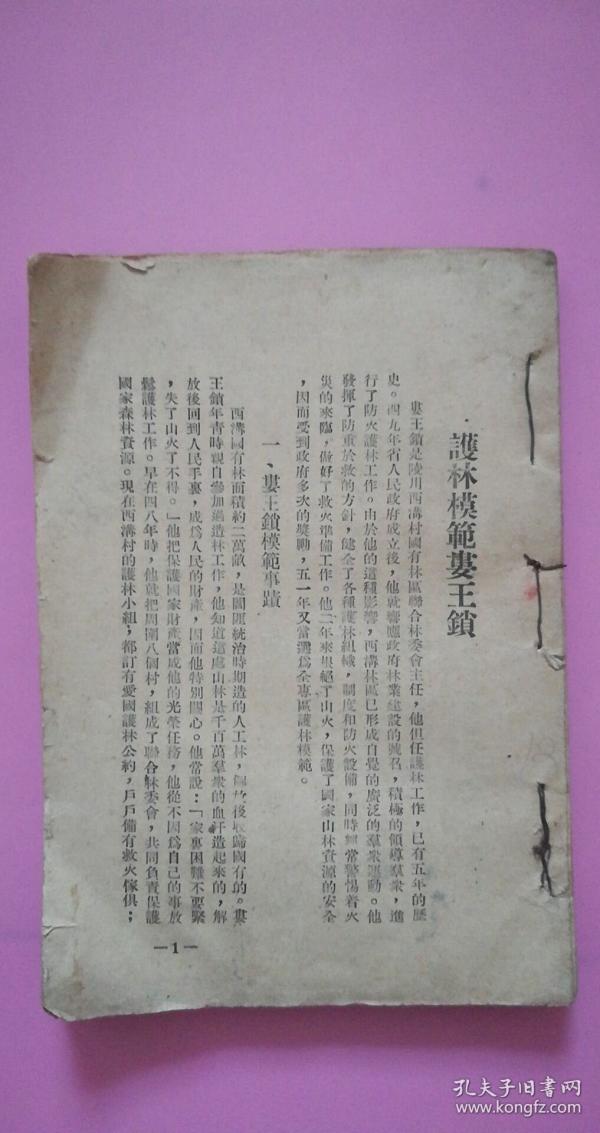 護林模範婁王鎖
婁王鎖是陵川西溝村國有林區聯合林委會主任，他但任護林工作，已有五年的歷
史。四九年省人民政府成立後，他就響應政府林業建設的號召，積極的領導羣衆，進
行了防火護林工作。由於他的這種影響，西溝林區已形成自覺的廣泛的羣衆運動。他
發揮了防重於救的方針，健全了各種護林組織，制度和防火設備，同時經常警惕着火
災的來臨，做好了救火準備工作。他二年來杜絕了山火，保護了國家山林資源的安全
，因而受到政府多次的獎勵，五一年又當選爲全專區護林模範。
一、婁王鎖模範事蹟
西溝國有林面積約二萬畝，是閻匪統治時期造的人工林，解放後收歸國有的。婁
王鎖年青時親自參加過造林工作，他知道這處山林是千百萬羣衆的血汗造起來的，解
放後回到人民手裏，成爲人民的財產，因而他特別關心。他常說：「家裏困難不要緊
，失了山火了不得。」他把保護國家財產當成他的光榮任務，他從不因爲自己的事放
鬆護林工作。早在四八年時，他就把周圍八個村，組成了聯合林委會，共同負責保護
國家森林資源。現在西溝村的護林小組，都訂有愛國護林公約，戶戶備有救火傢俱；
—1—
孔夫子旧书网
www.kongfz.com